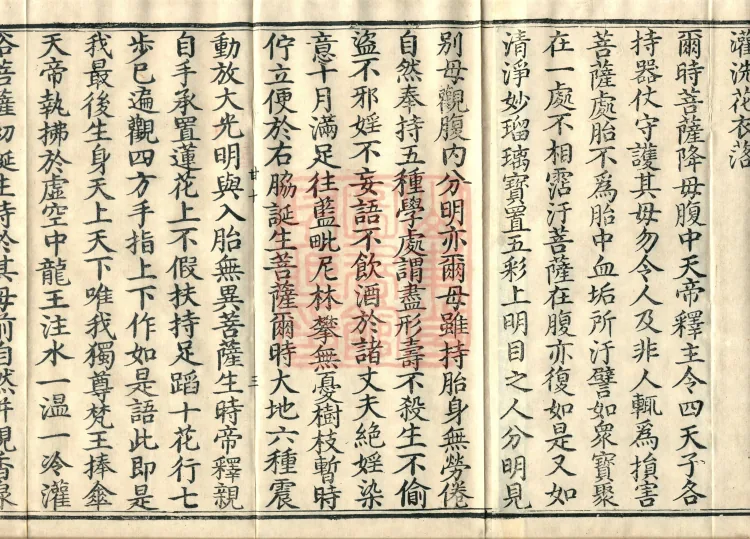 灌洗花衣落
爾時菩薩降母腹中天帝釋主令四天子各
持器仗守護其母勿令人及非人輒為損害
菩薩處胎不為胎中血垢所汙譬如眾寶聚
在一處不相霑汙菩薩在腹亦復如是又如
清淨妙瑠璃寶置五彩上明目之人分明見
別母觀腹內分明亦爾母雖持胎身無勞倦
自然奉持五種學處謂盡形壽不殺生不偷
盜不邪婬不妄語不飲酒於諸丈夫絕婬染
意十月滿足往藍毗尼林攀無憂樹枝暫時
佇立便於右脇誕生菩薩爾時大地六種震
動放大光明與入胎無異菩薩生時帝釋親
廿十
三
自手承置蓮花上不假扶持足蹈十花行七
步已遍觀四方手指上下作如是語此即是
我最後生身天上天下唯我獨尊梵王捧傘
天帝執拂於虛空中龍王注水一溫一冷灌
浴菩薩初誕生時於其母前自然井現香